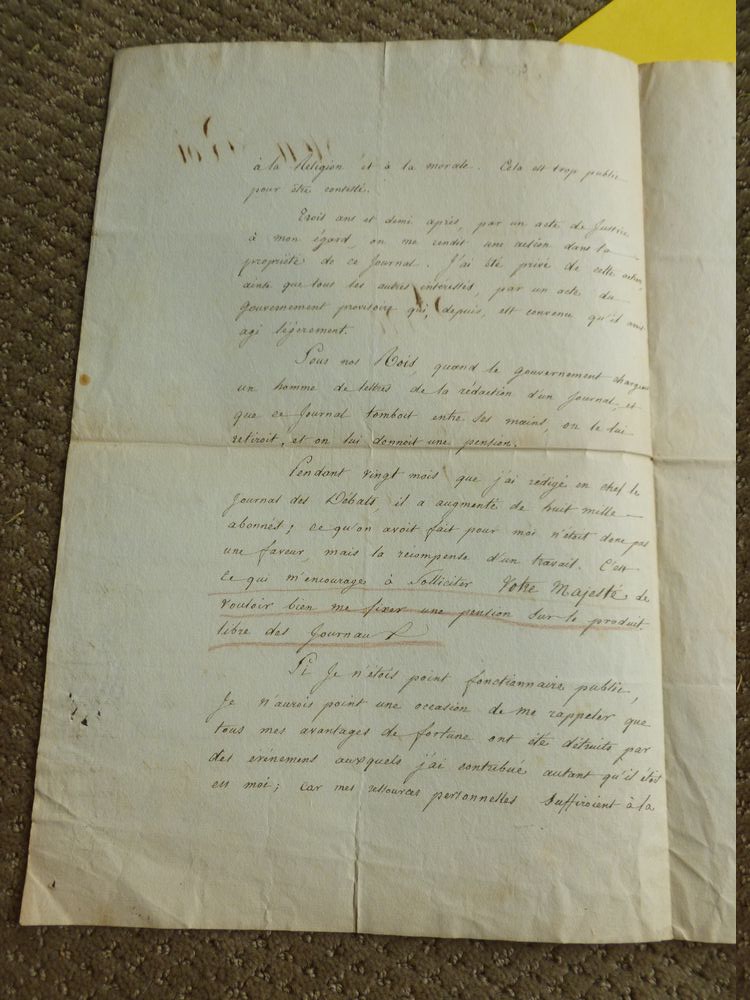 à la Religion et à la morale. Cela est trop public
pour être contesté.
Trois ans et demi après, par un acte de Justice
à mon égard, on me rendit une action dans la
propriété de ce Journal. J'ai été privé de cette action,
ainsi que tous les autres interessés, par un acte du
gouvernement provisoire qui, depuis, est convenu qu'il avoit
agi légèrement.
Sous nos Rois, quand le gouvernement chargeoit
un homme de lettres de la rédaction d'un Journal, et
que ce Journal tomboit entre ses mains, on le lui
retiroit, et on lui donnoit une pension.
Pendant vingt mois que j'ai redigé en chef le
Journal des Débats, il a augmenté de huit mille
abonnés; ce qu'on avoit fait pour moi n'était donc pas
une faveur, mais la recompense d'un travail. C'est
ce qui m'encourage à Solliciter Votre Majesté de
vouloir bien me fixer une pension sur le produit
libre des Journaux.
Si Je n'étois point fonctionnaire public,
Je n'aurois point une occasion de me rappeler que
tous mes avantages de fortune ont été détruits par
des événemens auxquels j'ai contribué autant qu'il étoit
en moi; car mes ressources personnelles Suffiroient à la